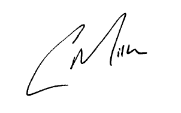 C Miller